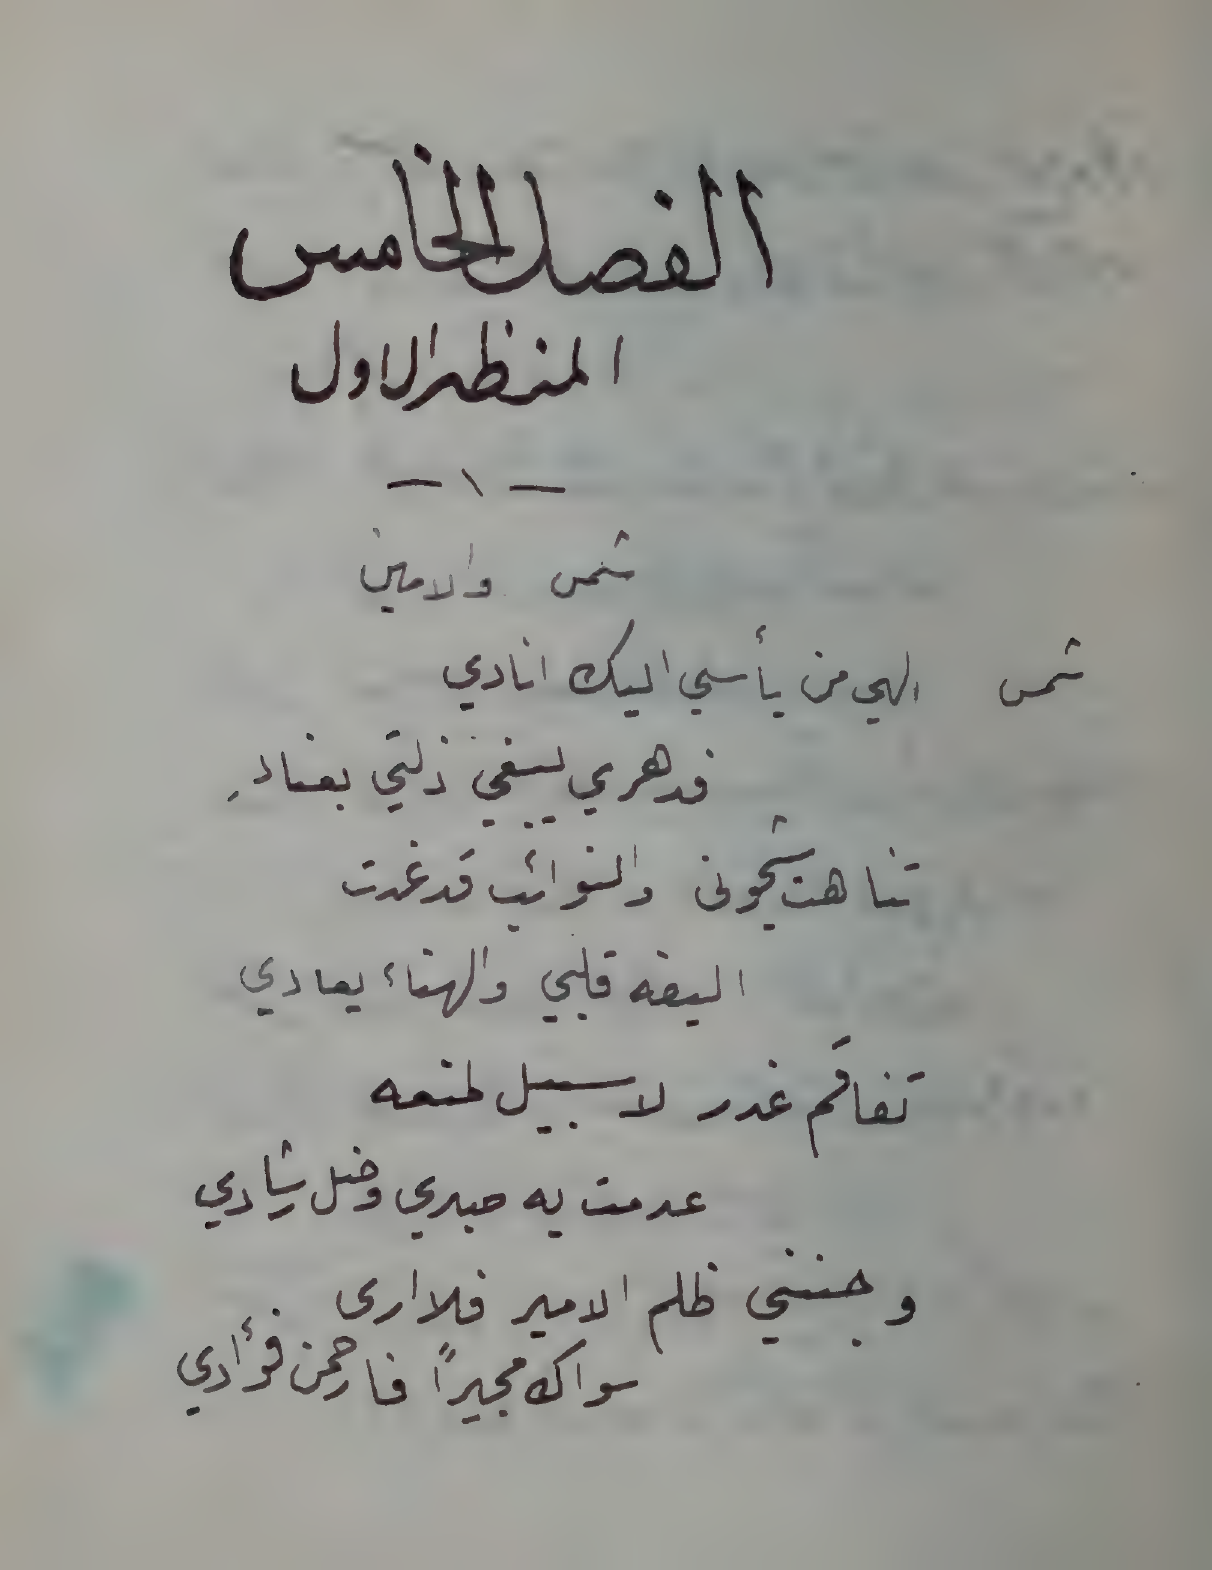 الفصل الخامس
المنظر الاول
— ١ —
شمس والامين
شمس الهي من يأسي اليك انادي
فدهري يبغي ذلتي بعناد
تناهت شجوني والنوائب قد غدت
اليفه قلبي والهناء يعادي
تفاقم غدر لا سبيل لمنعه
عدمت به صبري وضل رشادي
وحنني ظلم الامير فلا ارى
سواك مجيراً فارحمن فؤادي